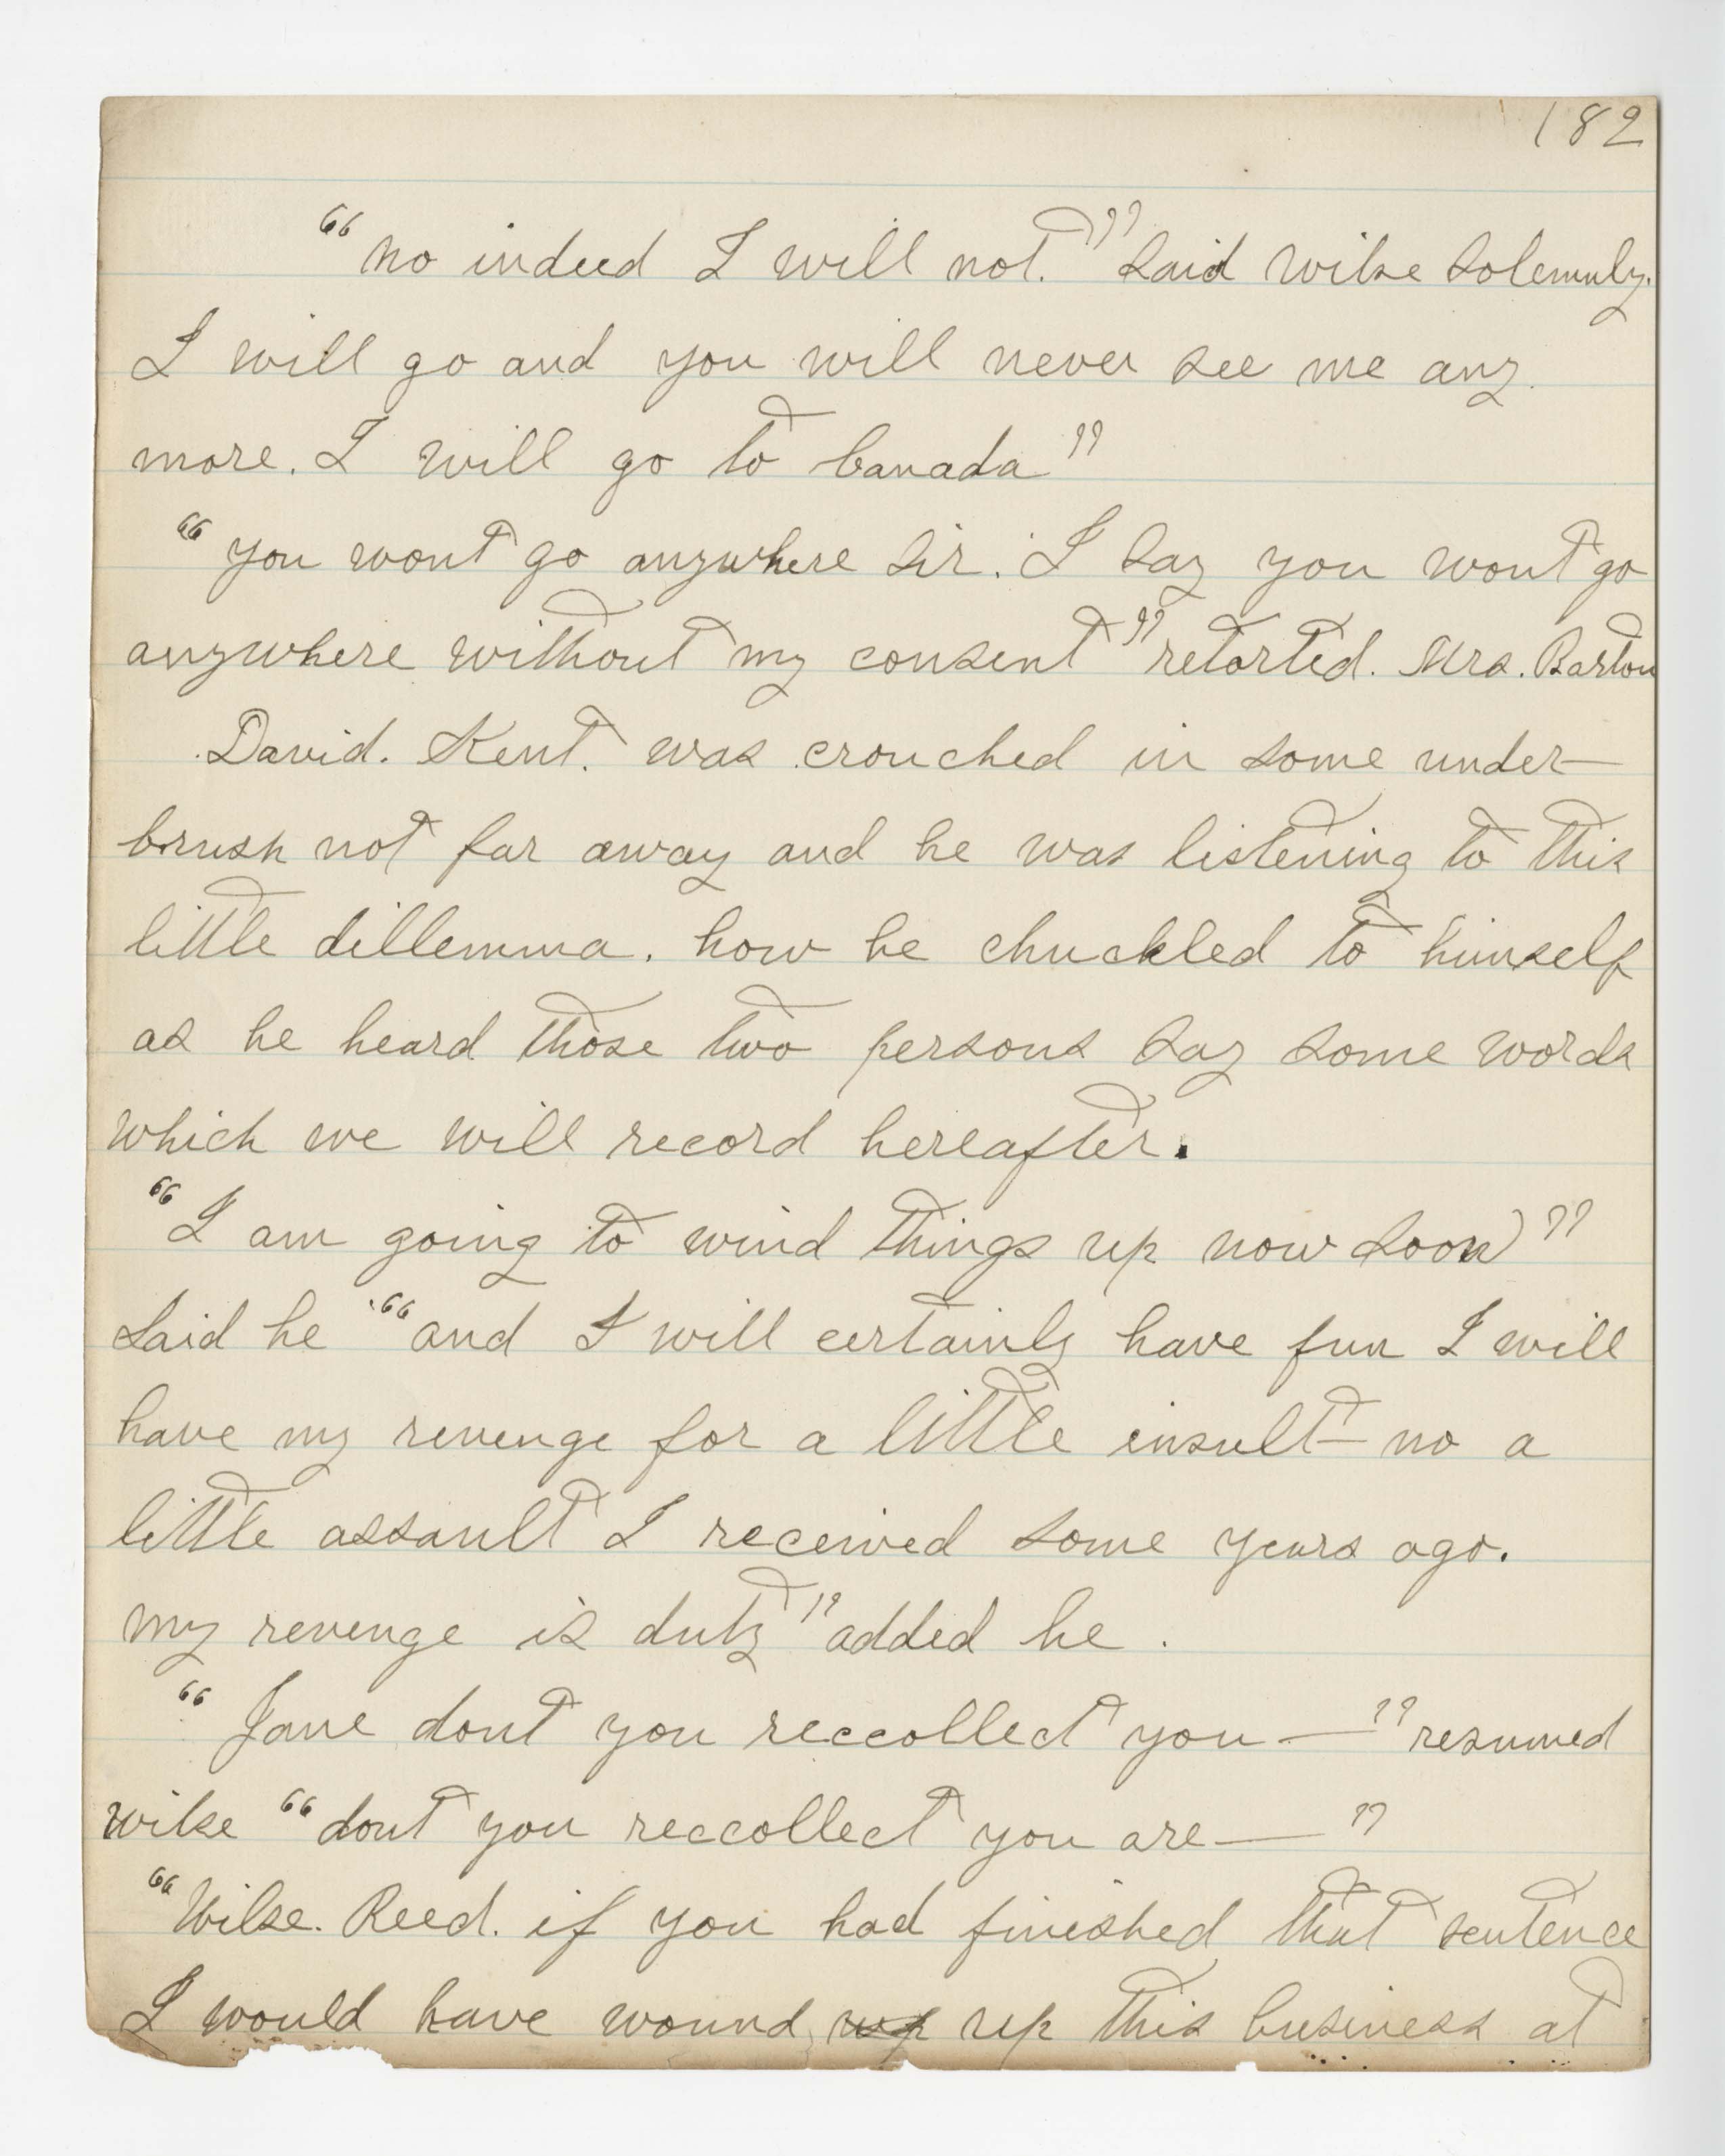 182
"no indeed I will not." said wilse solemnly.
I will go and you will never see me any
more. I will go to Canada"
"you wont go anywhere sir. I say you wont go
anywhere without my consent" retorted. Mrs. Barton
David. Kent. was crouched in some under-
brush not far away and he was listening to this
little dillemma. how he chuckled to himself
as he heard those two persons say some words
which we will record hereafter.
"I am going to wind things up now soon"
said he "and I will certainly have fun I will
have my revenge for a little insult—no a
little assault I received some years ago.
my revenge is duty" added he.
"Jane dont you reccollect you—" resumed
wilse "dont you reccollect you are—"
"Wilse. Reed. if you had finished that sentence
I would have wound up up this business at